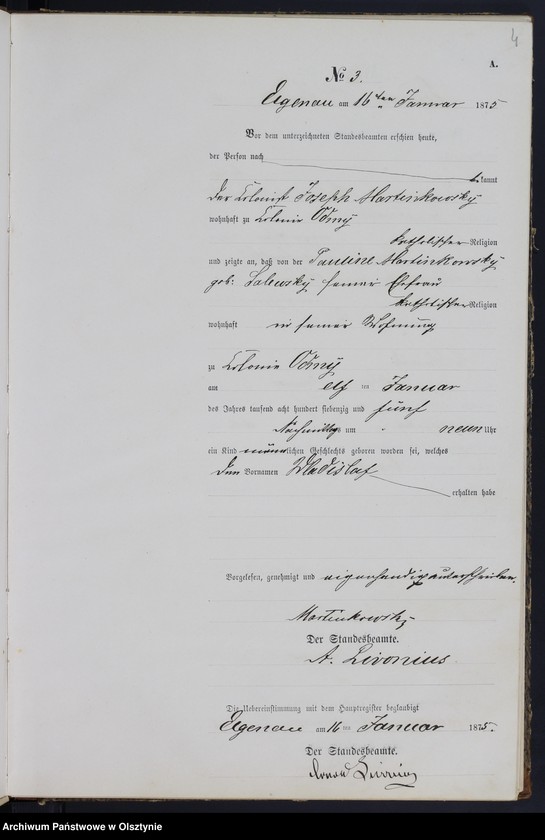 4
A.
No 3.
Elgenau am 16ten Januar 1875
Vor dem unterzeichneten Standesbeamten erschien heute,
der Person nach
bekannt
der Colonist Joseph Martinkowsky
wohnhaft zu Colonie
katholischer Religion
und zeigte an, daß von der Pauline Martinkowsky
geb: Salewsky seiner Ehefrau
katholischer Religion
wohnhaft in seiner Wohnung
zu Colonie
am elf ten Januar
des Jahres tausend acht hundert siebenzig und fünf
Nachmittags um neun Uhr
ein Kind männlichen Geschlechts geboren worden sei, welches
den Vornamen Wladislaf
erhalten habe
Vorgelesen, genehmigt und eigenhändig unterschrieben.
Martinkowsky
Der Standesbeamte.
A. Livonius
Die Uebereinstimmung mit dem Hauptregister beglaubigt
Elgenau am 16ten Januar 1875.
Der Standesbeamte.
Livonius
Archiwum Państwowe w Olsztynie